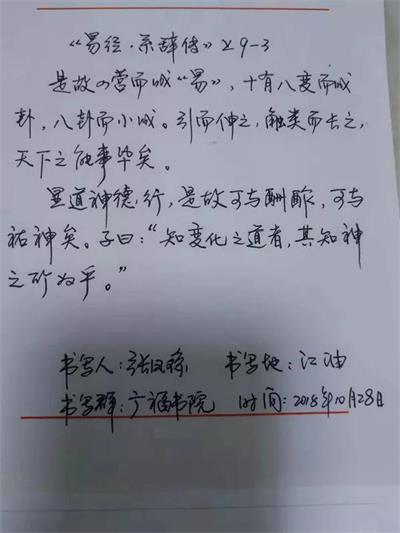 《易经·系辞传》上9-3
是故四营而成“易”，十有八变而成
卦，八卦而小成。引而伸之，触类而长之，
天下之能事毕矣。
显道神德行，是故可与酬酢，可与
祐神矣。子曰：“知变化之道者，其知神
之所为乎。”
书写人：张 书写地：江油
书写群：广福书院 时间：2018年10月28日